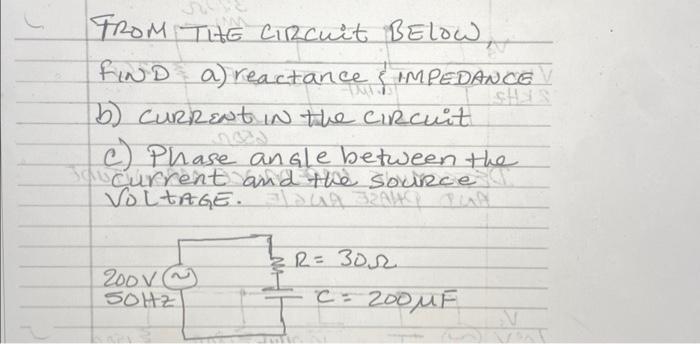 FROM THE CIRCUIT BELOW,
FIND a) reactance & IMPEDANCE
b) CURRENT IN the CIRCUIT
c) Phase angle between the
current and the source
VOLTAGE.
R = 30Ω
200V
50HZ
C = 200µF